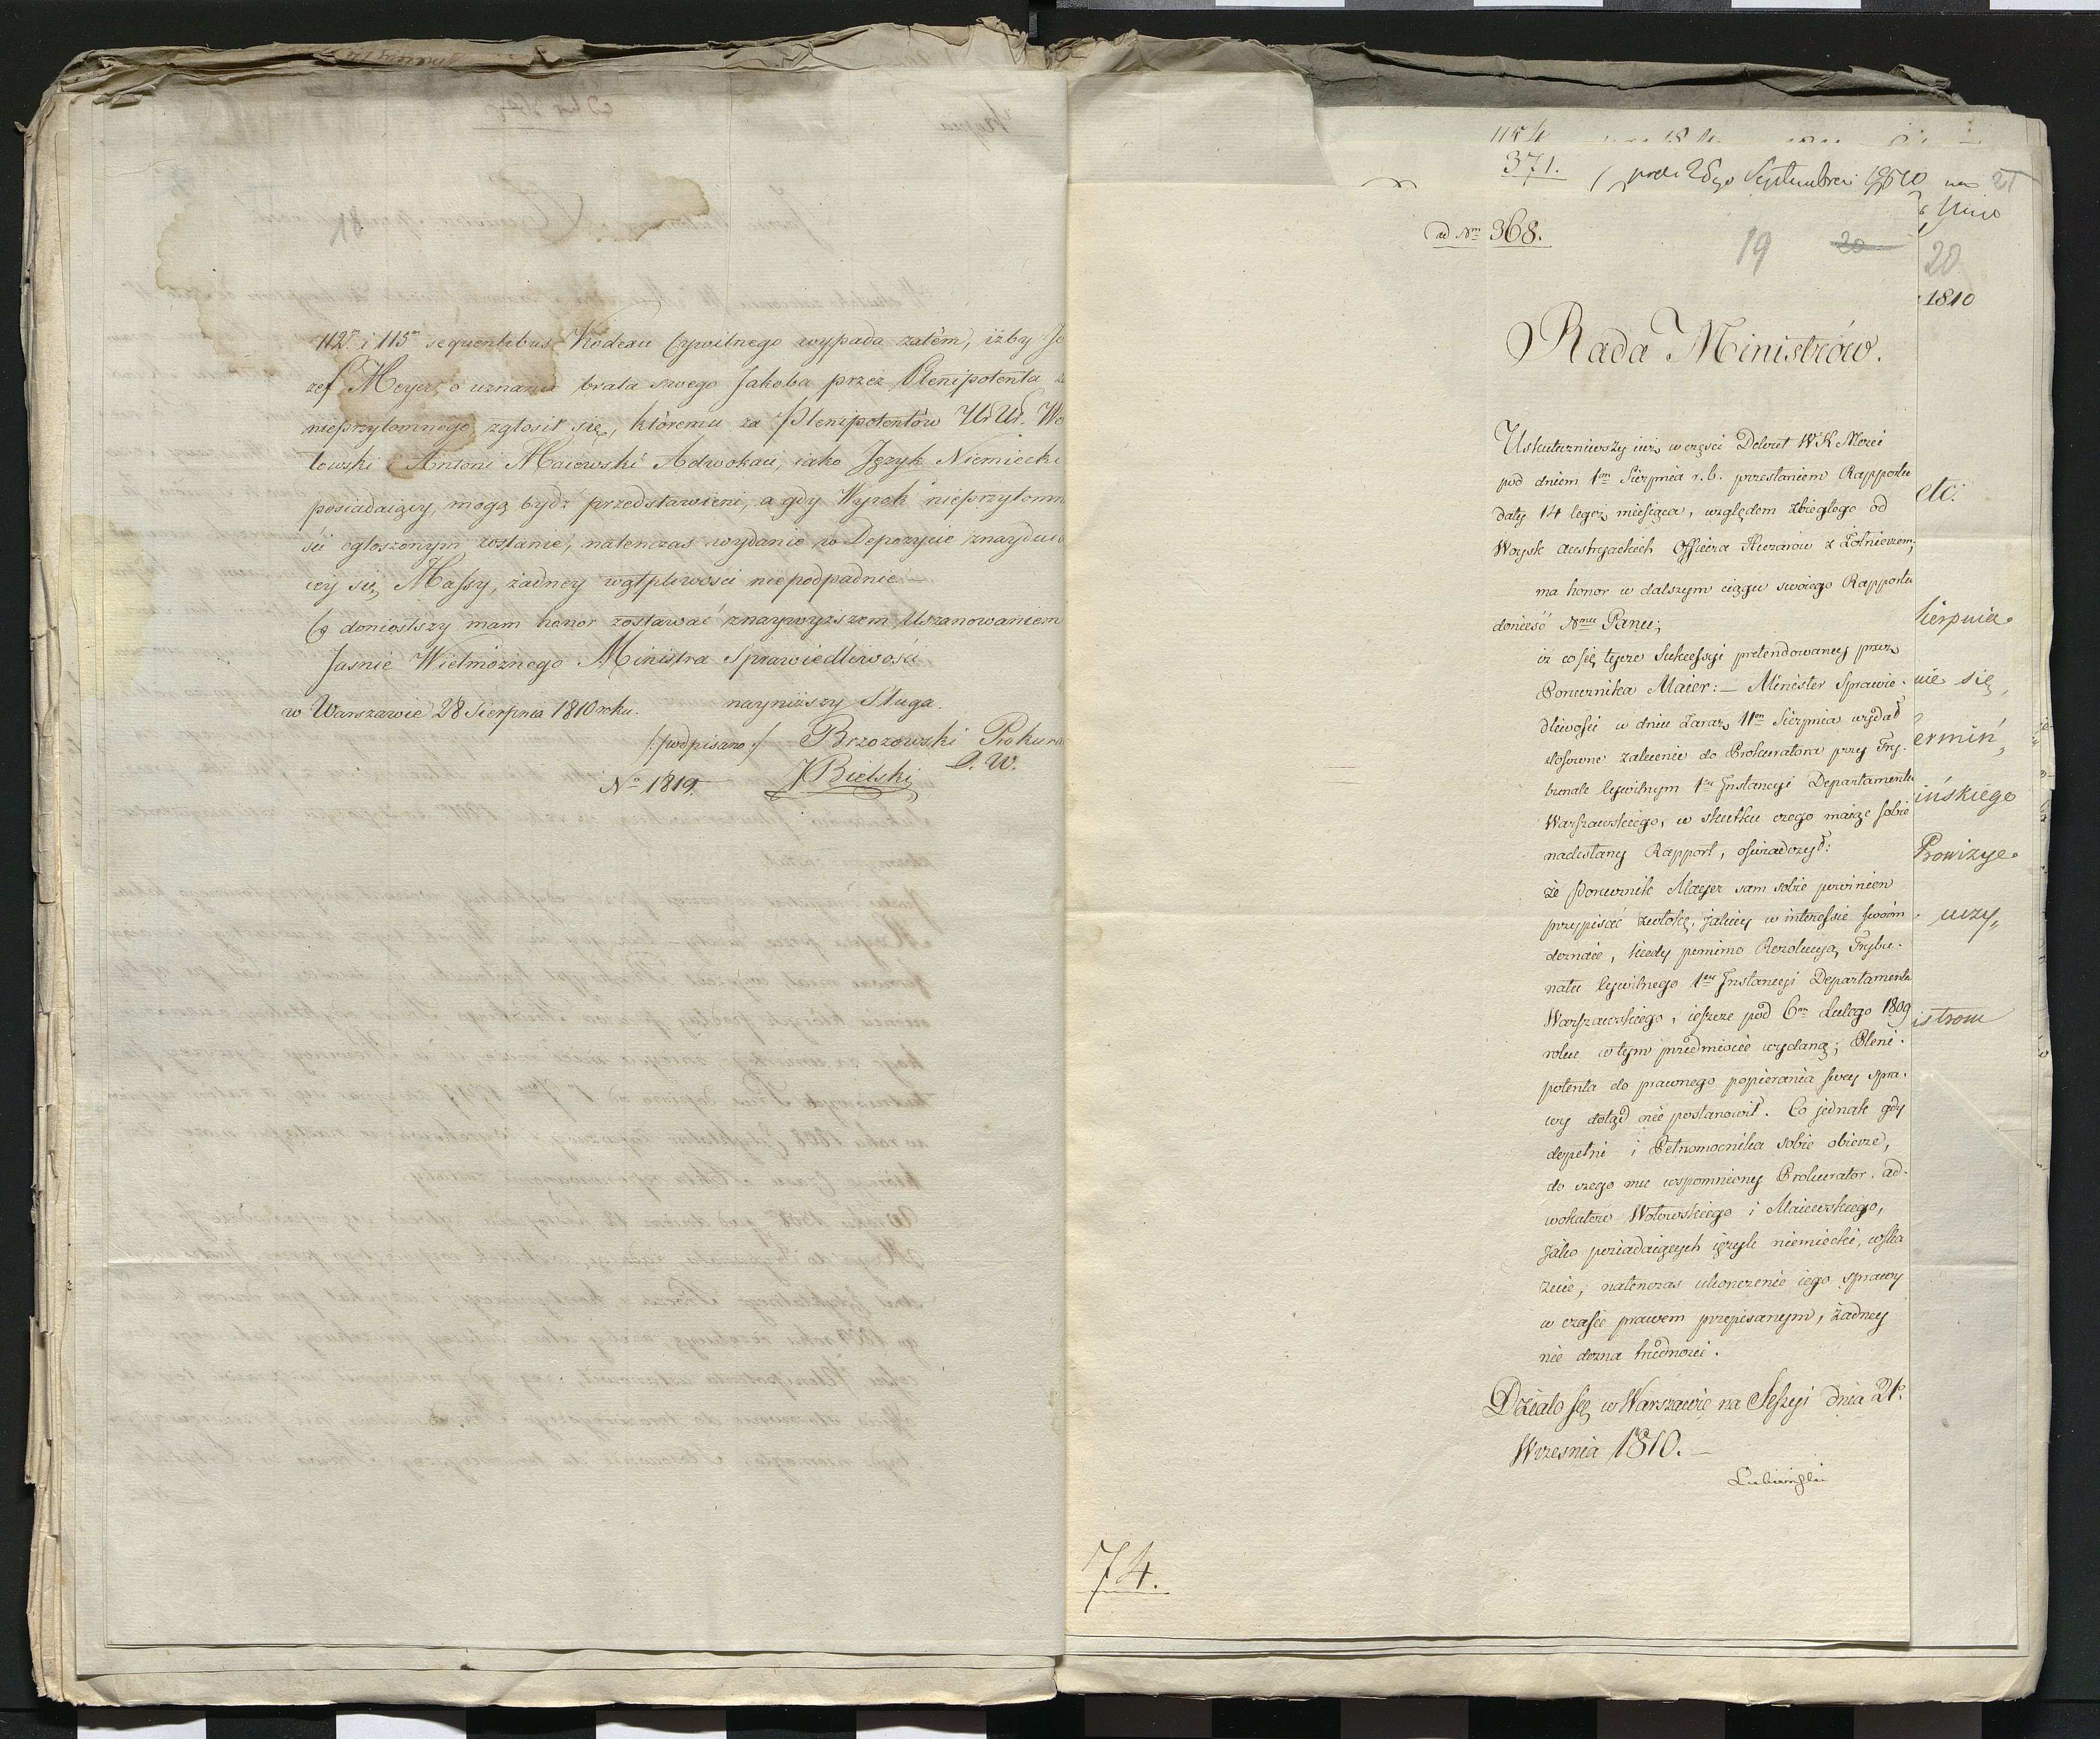 112º i 115º sequentibus Kodexu Cywilnego wypada zatém, iżby Jo
zef Meyer o uznanie brata swego Jakoba przez Plenipotenta za
nieprzytomnego zgłosił się, któremu za Plenipotentów Ur Ur. Wo
łowski i Antoni Maiewski Adwokaci, iako Język Niemiecki
posiadaiący, mogą bydź przedstawieni, a gdy Wyrok nieprzytomno
ści ogłoszonym zostanie, natenczas wydanie w Depozycie znayduią
cey się Massy, żadney wątpliwości niepodpadnie —
Co doniosłszy mam honor zostawać z naywyższem Uszanowaniem
Jaśnie Wielmożnego Ministra Sprawiedliwości
nayniższy Sługa.
w Warszawie 28 Sierpnia 1810 roku.
/:podpisano:/ Brzozowski Prokura
D. W.
Nº 1819. JBielski
1154
371. 25go Septembra 1810 21
ad Nrm 368.
19 20
20
1810
Rada Ministrów.
Uskuteczniwszy iuż w części Dekret W K Mości
pod dniem 1m Sierpnia r. b. przesłaniem Rapportu
daty 14 tegoż miesiąca, względem zbiegłego od
Woysk austryackich Officera Huzarów z Żołnierzem;
etc.
ma honor w dalszym ciągu swoiego Rapportu
donieść Nmu Panu;
Sierpnia
iż co się tycze Sukcessyi pretendowaney przez
Porucznika Maier: — Minister Sprawie-
nie się,
dliwości w dniu zaraz 11m Sierpnia wydał
stosowne zalecenie do Prokuratora przy Try-
ermin,
bunale Cywilnym 1ey Instancyi Departamentu
ińskiego
Warszawskiego, w skutku czego maiąc sobie
nadesłany Rapport, oświadczył:
Prowizye
że Porucznik Mayer sam sobie powinien
przypisać zwłokę, jakiey w interessie swoim
uczy,
doznaie, kiedy pomimo Rezolucyą Trybu-
nału Cywilnego 1ey Instancyi Departamentu
Warszawskiego, ieszcze pod 6m Lutego 1809
istrow
roku w tym przedmiocie wydaną; Pleni-
potenta do prawnego popierania swey spra-
wy dotąd nie postanowił. Co jednak gdy
dopełni i Pełnomocnika sobie obierze,
do czego mu wspomniony Prokurator ad-
wokatów Wołowskiego i Maiewskiego,
jako posiadaiących ięzyk niemiecki, wska
zuie; natenczas ukończenie iego sprawy
w czasie prawem przepisanym, żadney
nie dozna trudności.
Działo się w Warszawie na Sessyi dnia 21º
Września 1810. —
Lubieński
74.